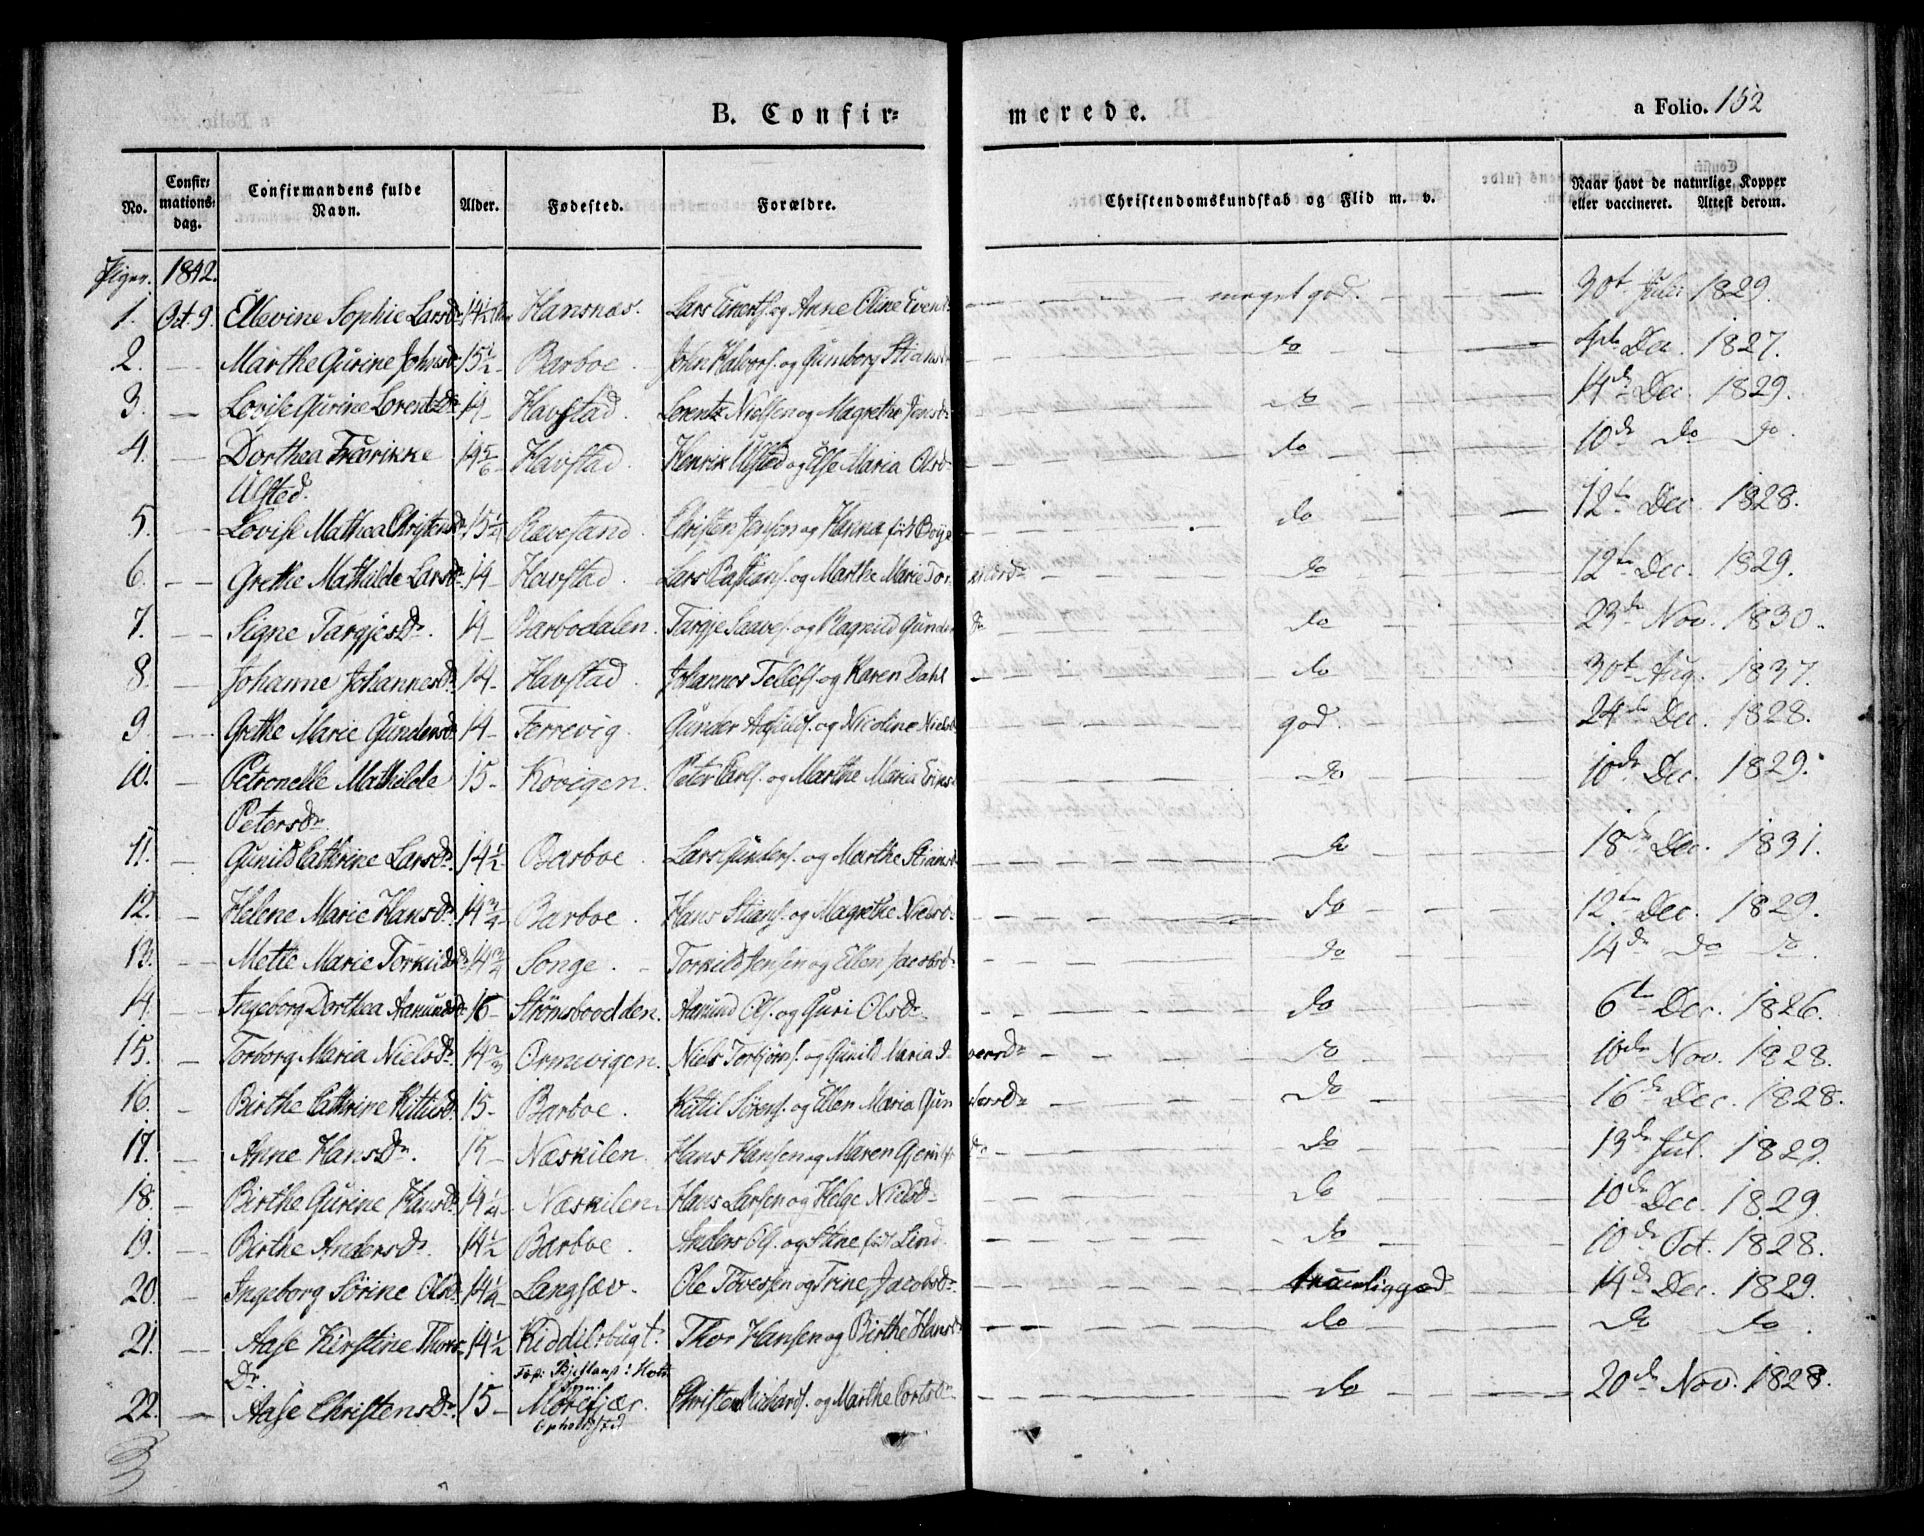 B. Confir= merede. a Folio. 152
No. Confirmationsdag. Confirmandens fulde Navn. Alder. Fødested. Forældre. Christendomskundskab og Flid m. v. Naar havt de naturlige Kopper eller vaccineret. Attest derom.
Piger. 1842.
1. Oct. 9. Ellevine Sophie Larsdr 14½ Hansnæs. Lars Everts. og Anne Oline Evends meget god. 30t Juli 1829.
2. Marthe Gurine Johnsdr 15½ Barboe. John Halvors. og Gunborg Stiansd do 4de Dec. 1827.
3. Lovise Gurine Lorentzdr 14 Havstad. Lorentz Nielsen og Magrethe Jensdr do 14de Dec. 1829.
4. Dorthea Fredrikke 14 5/6 Havstad. Henrik Ulsted og Else Maria Olsdr do 10de do do.
Ulsted.
5. Lovise Mathea Christensdr 15¼ Rævesand. Christen Jensen og Hanna født Boye do 12te Dec. 1828.
6. Grethe Mathilde Larsdr 14 Havstad. Lars Bastians. og Marthe Marie Tor do 12te Dec. 1829.
7. Signe Targjesdr. 14 Barbodalen. Targje Saaves. og Ragnild Gunder dr do 23de Nov. 1830.
8. Johanne Johannesdr 14 Havstad. Johannes Tellefs. og Karen Dahl do 30t Aug. 1837.
9. Grethe Marie Gundersdr 14 Ferrevig. Gunder Aslds. og Nicoline Nielsd god. 24de Dec. 1828.
10. Petronelle Mathilde 15 Kovigen. Peter Carls. og Marthe Maria Eriks do 10de Dec. 1829.
Petersdr
11. Gunild Cathrine Larsdr. 14½ Barboe. Lars Gunders. og Marthe Stiansd do 18de Dec. 1831.
12. Helene Marie Hansdr 14¾ Barboe. Hans Stians. og Magrethe Nielsdr do 12te Dec. 1829.
13. Mette Marie Torkildsdr 14¾ Songe. Torkild Jensen og Ellen Jacobsdr do 14de do do.
14. Ingeborg Dorthea Aamundsdr 16 Strømsboodden. Aamund Ols. og Guri Olsdr. do 6te Dec. 1826.
15. Torborg Maria Nielsdr 14⅔ Ormevigen. Niels Torbjørns. og Gunild Maria do 10de Nov. 1828.
16. Birthe Cathrine Kittilsdr. 15 Barboe. Kittil Sørens. og Ellen Maria Gun dersdr do 16de Dec. 1828.
17. Anne Hansdr. 15 Næskilen. Hans Hansen og Maren dr do 13de Jul. 1829.
18. Birthe Gurine Hansdr 14¼ Næskilen. Hans Larsen og Helge Nielsdr do 10de Dec. 1829.
19. Birthe Andersdr. 14½ Barboe. Anders Ols. og Stine født Lind. do 10de Oct. 1828.
20. Ingeborg Sørine Olsdr. 14¼ Langsæv. Ole Tovesen og Trine Jacobsdr temmelig god 14de Dec. 1829.
21. Aase Kirstine Thors 14½ Kiddilsbugt. Thor Hansen og Birthe Hansdr do do do
Dr. Fød:
22. Aase Christensdr. 15 Morefjær. Christen Richards. og Marthe do 20de Nov. 1828.
Opholdssted